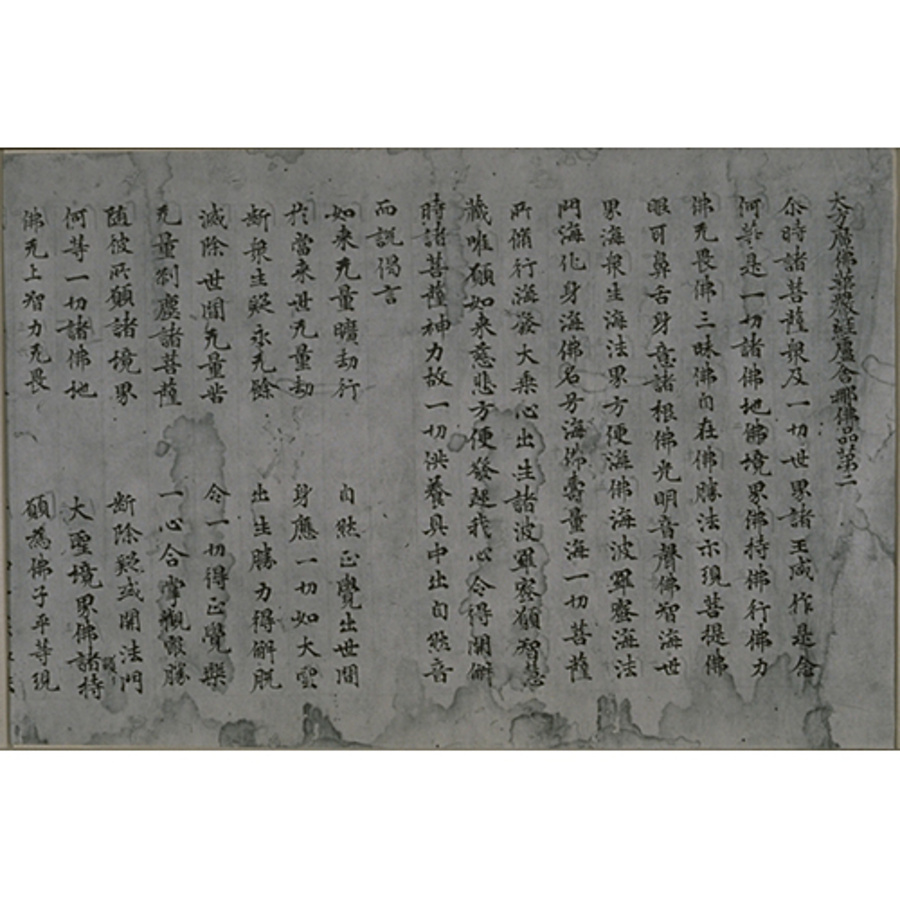 大方廣佛華嚴經盧舍那佛品第二
尒時諸菩薩衆及一切世界諸王咸作是念
何等是一切諸佛地佛境界佛持佛行佛力
佛无畏佛三昧佛自在佛勝法示現菩提佛
眼耳鼻舌身意諸根佛光明音聲佛智海世
界海衆生海法界方便海佛海波羅蜜海法
門海化身海佛名号海佛壽量海一切菩薩
所脩行海發大乘心出生諸波羅蜜願智慧
藏唯願如来慈悲方便發起我心令得開解
時諸菩薩神力故一切供養具中出自然音
而説偈言
如来无量曠劫行 自然正覺出世間
於當来世无量劫 身應一切如大雲
断衆生疑永无餘 出生勝力得解脱
滅除世間无量苦 令一切得正覺樂
无量刹塵諸菩薩 一心合掌觀最勝
随彼所願諸境界 断除疑惑開法門
何等一切諸佛地 大聖境界佛諸持
佛无上智力无畏 願為佛子平等現